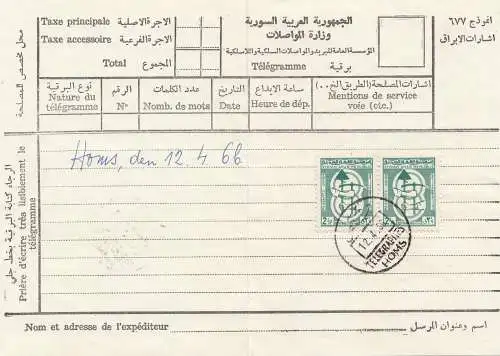 Taxe principale الاجرة الاصلية
Taxe accessoire الاجرة الفرعية
Total المجموع
الجمهورية العربية السورية
وزارة المواصلات
المؤسسة العامة للبريد والمواصلات السلكية واللاسلكية
Télégramme برقية
انموذج ٦٧٧
اشارات الابراق
محل مخصص للمصلحة
نوع البرقية
Nature du
télégramme
الرقم
N°
عدد الكلمات
Nomb. de mots
التاريخ
Date
ساعة الايداع
Heure de dép.
اشارات المصلحة (الطريق الخ..)
Mentions de service
voie (etc.)
الرجاء كتابة البرقية بخط جلي
Prière d'écrire très lisiblement le
télégramme
Homs, den 12.4 66
TELEGRAPHE
HOMS
Nom et adresse de l'expéditeur
اسم وعنوان المرسل